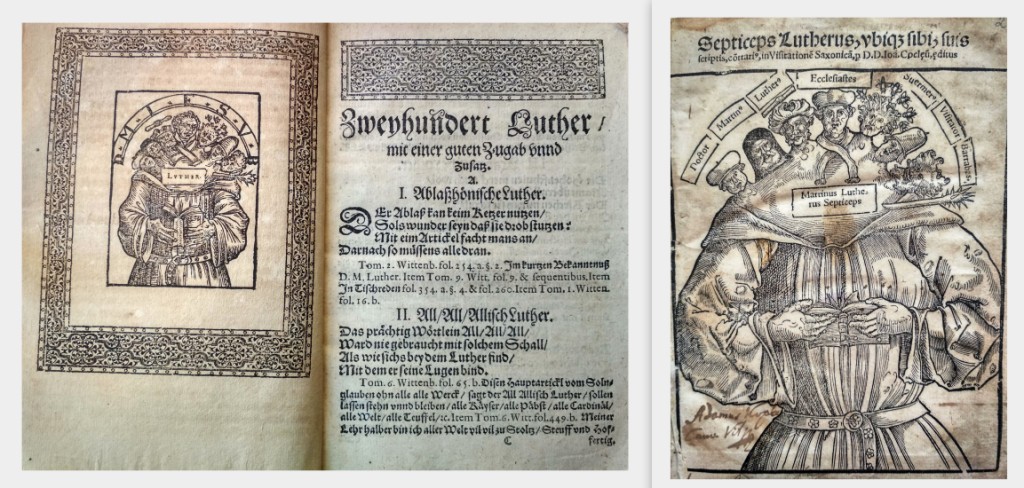 D. M. I. E. S. V. B
LVTHER.
Zweyhundert Luther /
mit einer guten Zugab vnnd
Zusatz.
A.
I. Ablaßhönische Luther.
DEr Ablaß kan keim Ketzer nutzen /
Sols wunder seyn daß sie drob stutzen?
Mit eim Artickel facht mans an /
Darnach so müssens alle dran.
Tom. 2. Wittenb. fol. 254. a. §. 2. Im kurtzen Bekanntnuß
D. M. Luther. Item Tom. 9. Witt. fol. 9. & sequentibus, Item
In Tischreden fol. 354. a. §. 4. & fol. 260. Item Tom. 1. Witten.
fol. 16. b.
II. All / All / Allisch Luther.
Das prächtig Wörtlein All / All / All /
Ward nie gebraucht mit solchem Schall /
Als wie sichs bey dem Luther find /
Mit dem er seine Lugen bind.
Tom. 6. Wittenb. fol. 65. b. Disen Hauptartickl vom Solu-
glauben ohn alle alle Werck / sagt der All Allisch Luther / sollen
lassen stehn vnnd bleiben / alle Käyser / alle Päbst / alle Cardinäl /
alle Welt / alle Teuffel / ꝛc. Item Tom. 6. Witt. fol. 449. b. Meiner
Lehr halber bin ich aller Welt vil vil zu Stoltz / Steuff vnd Hof-
C fertig.
Septiceps Lutherus, vbiqꝫ sibi, suis
scriptis, cōtrariꝰ, in Visitationē Saxonicā, ꝑ D. D. Ioā. Cocleū, ęditus
Doctor Martinꝰ Lutherꝰ Ecclesiastes Suermerꝰ Visitator Barrabas
Martinus Luthe-
rus Septiceps